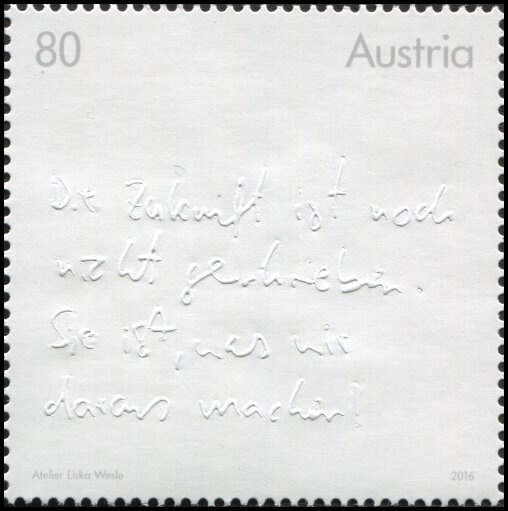 80 Austria
Die Zukunft ist noch
nicht geschrieben.
Sie ist, was wir
daraus machen!
Atelier Liska Wesle 2016